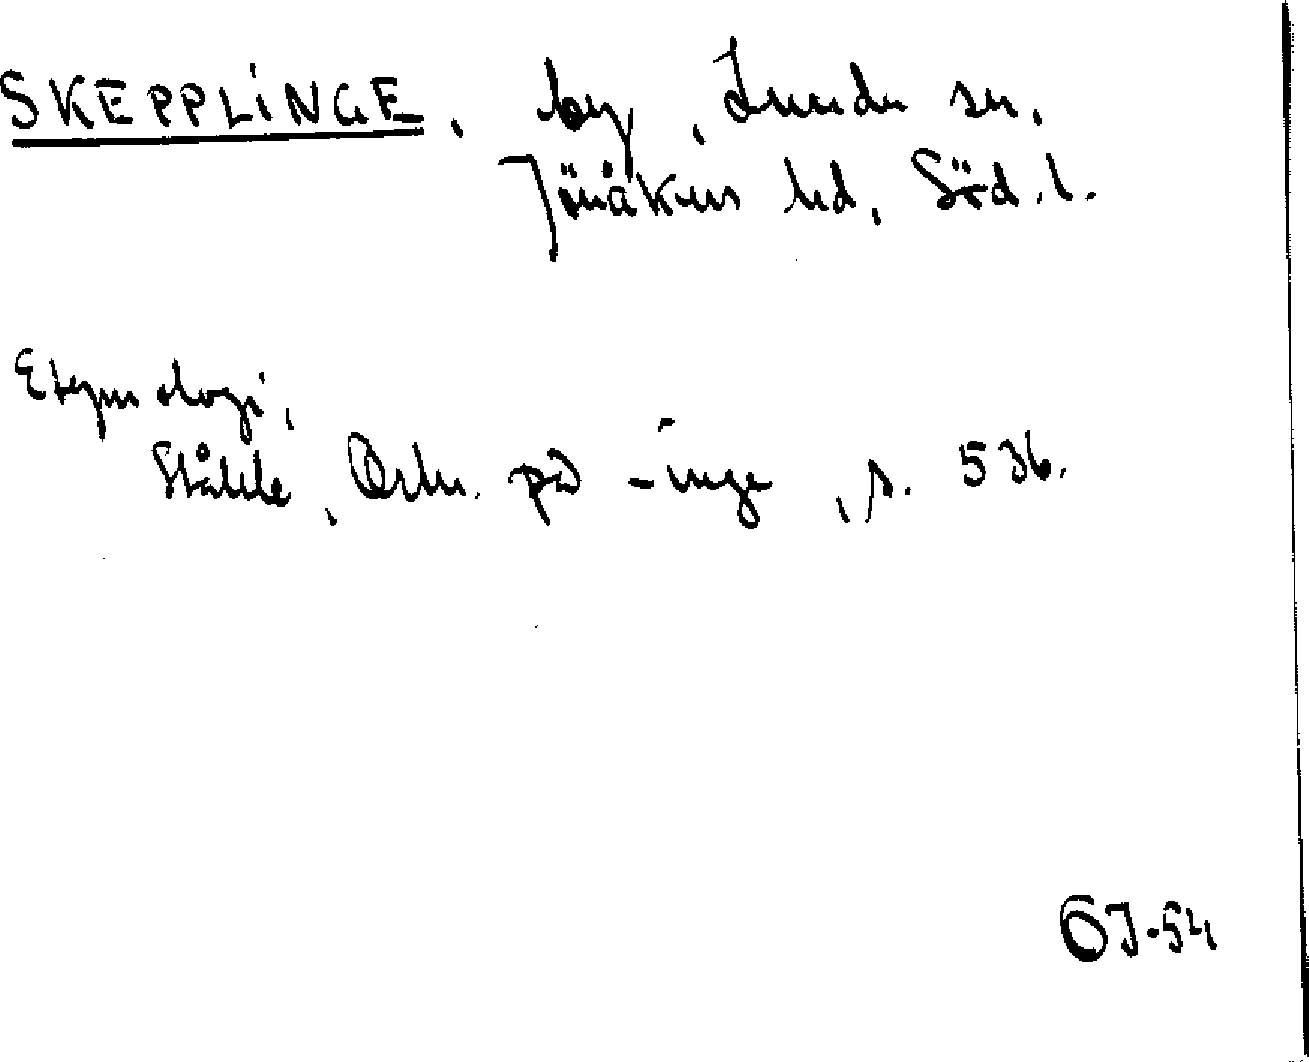 SKEPPLINGE, by, Lunda sn,
Jönåkers hd, Söd.l.
Etymologi,
Ståhle, Ortn. på -inge, s. 536.
ÓJ-54